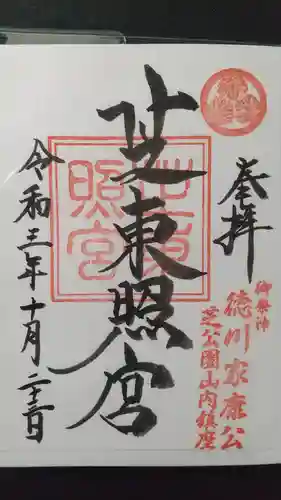 奉拝
御祭神
徳川家康公
芝公園山内鎮座
芝東照宮
令和三年十月二十三日